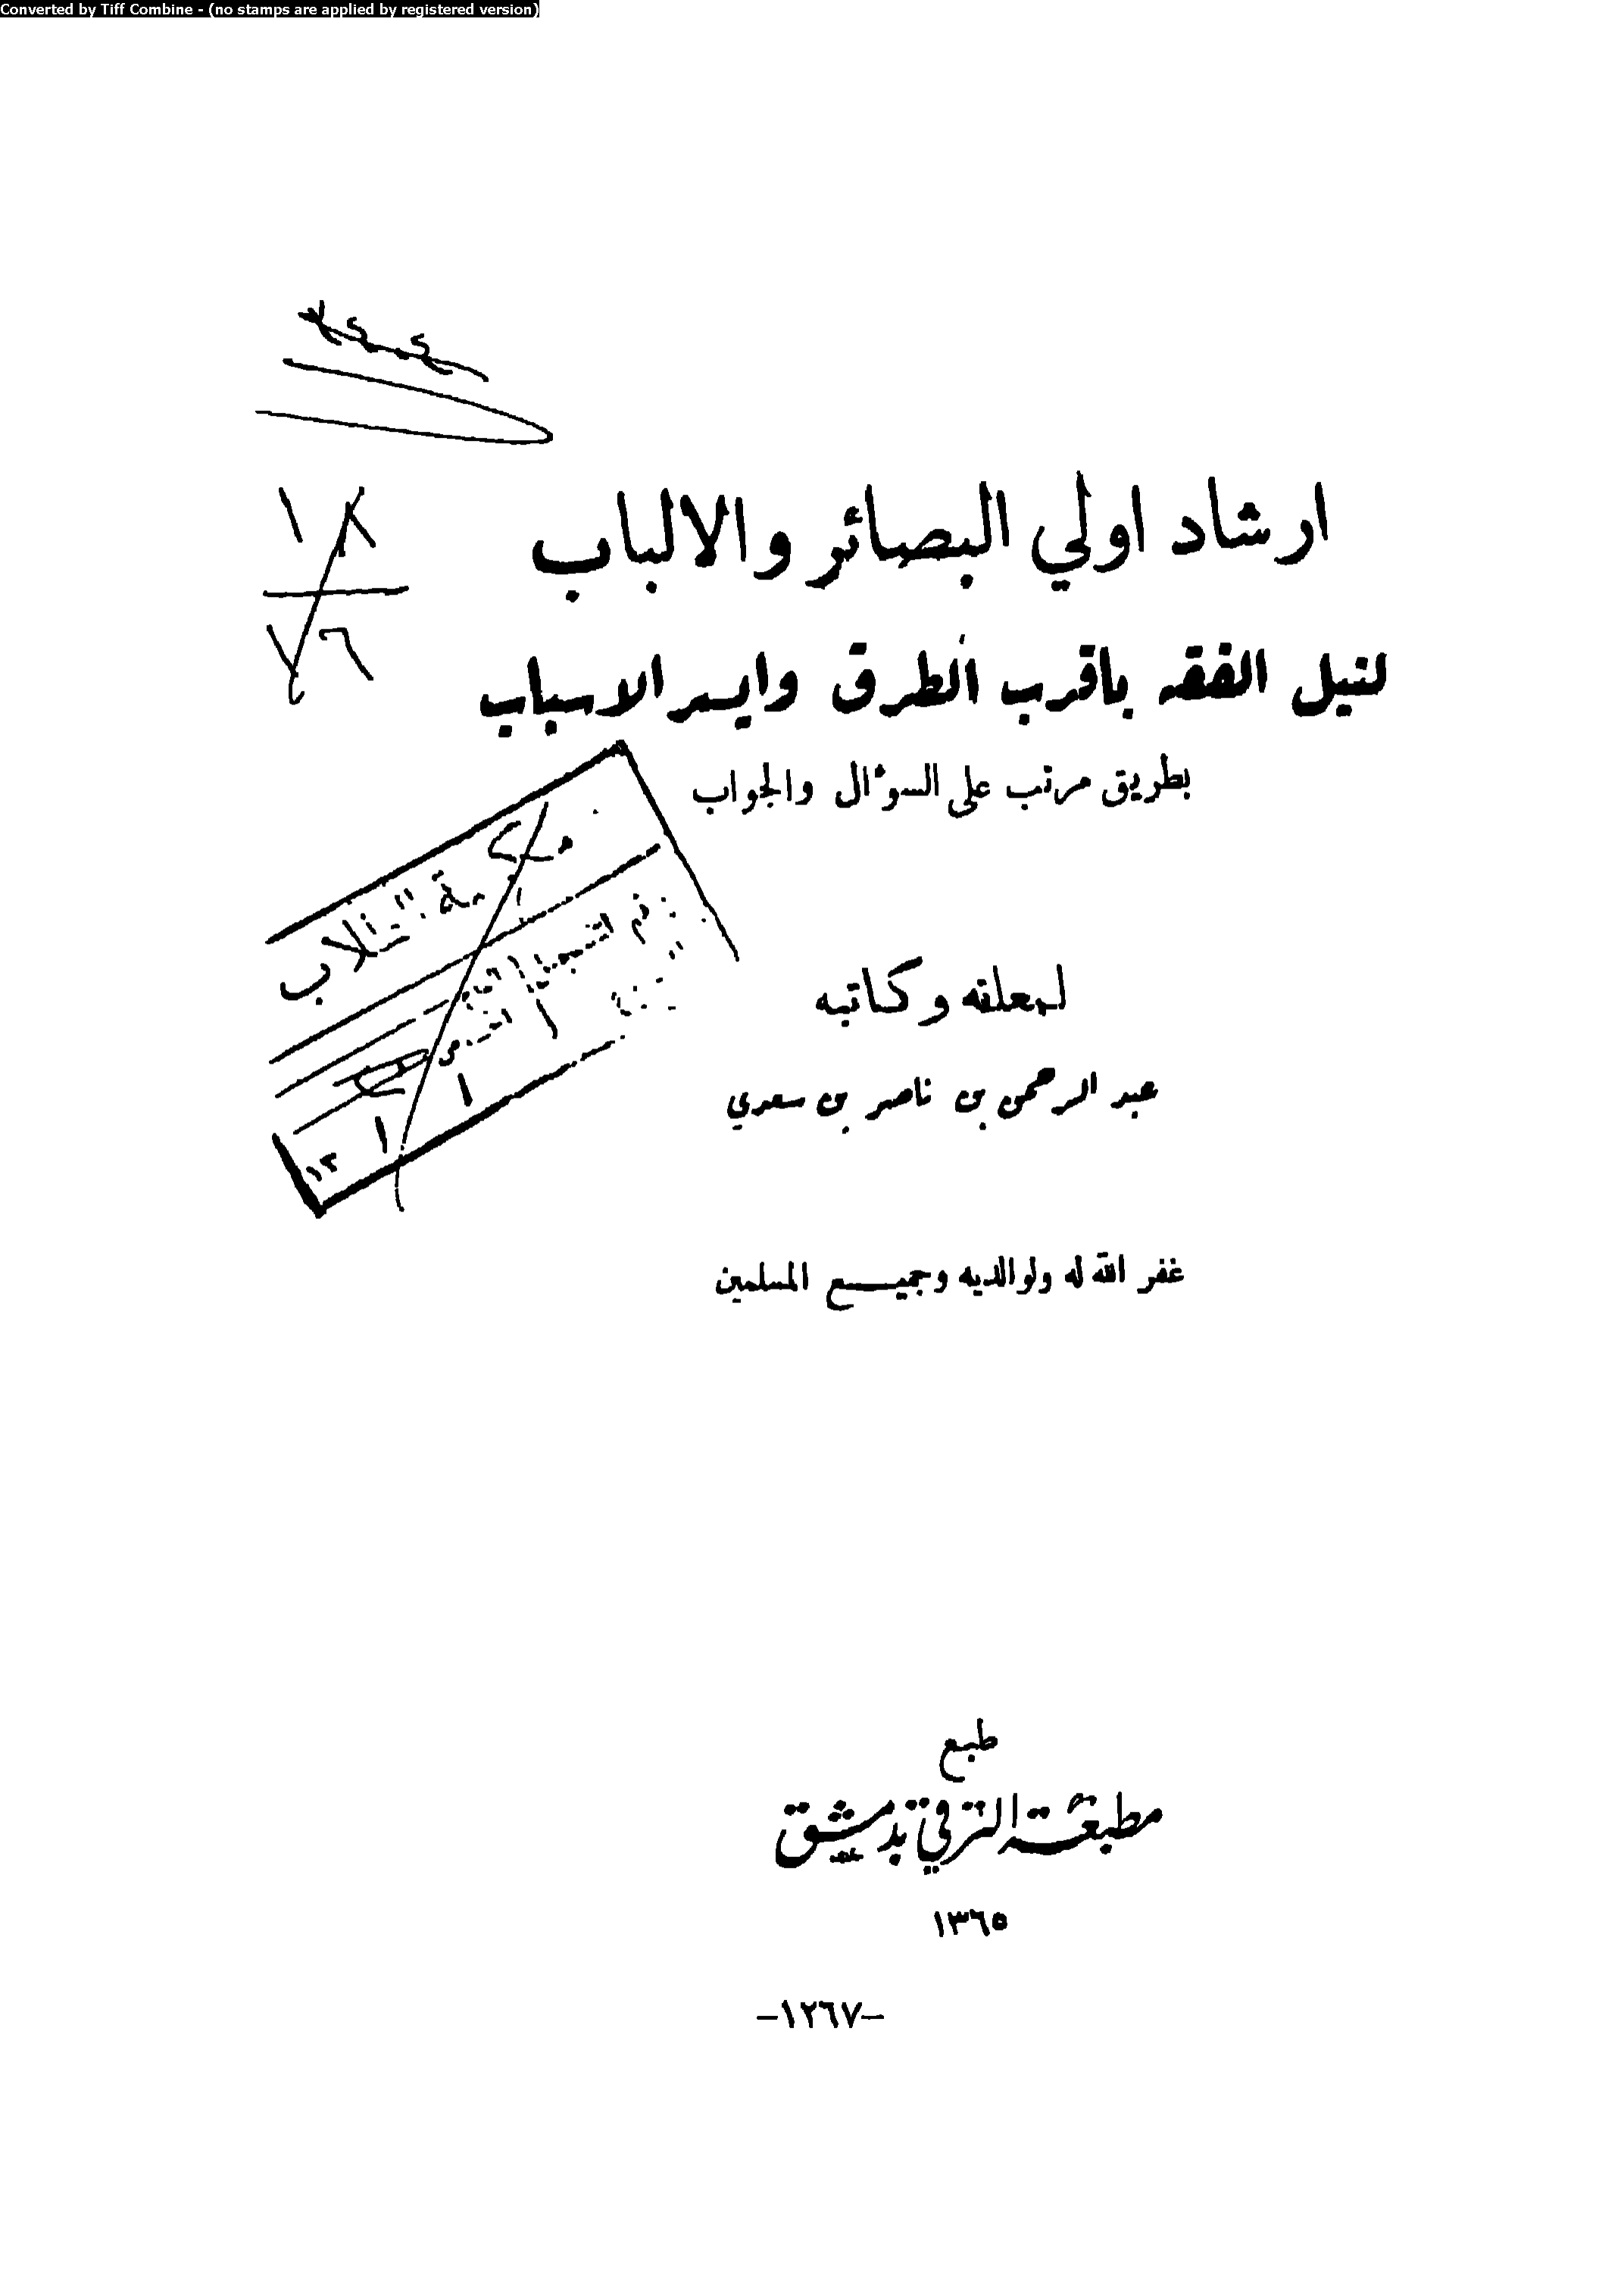 Converted by Tiff Combine - (no stamps are applied by registered version)
ارشاد اولي البصائر والالباب
لنيل الفقه باقرب الطرق وايسر الاسباب
بطريق مرتب على السوءال والجواب
لمعلقه وكاتبه
عبد الرحمن بن ناصر بن سعدي
غفر الله له ولوالديه وجميع المسلمين
طبع
مطبعة الترقي بدمشق
١٣٦٥
-١٢٦٧-